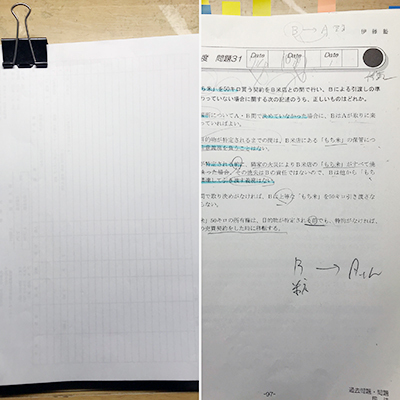 B → Aさん
伊藤塾
度 問題31 Date Date Date
もち米」を50キロ買う契約をB米店との間で行い、Bによる引渡しの準
っていない場合に関する次の記述のうち、正しいものはどれか。
についてA・B間で決めていなかった場合に、BはAが取りに来
っていればよい。
的物が特定されるまでの間は、B米店にある「もち米」の保管につ
意義務を負うことはない。
が特定される前に、隣家の火災によりB米店の「もち米」がすべて焼
まった場合、その焼失はBの責任ではないので、Bは他から「もち
達して引き渡す義務はない。
間で取り決めがなければ、Bは上等な「もち米」を50キロ引き渡さな
らない。
」50キロの所有権は、目的物が特定される前でも、特約がなければ、
の売買契約をした時に移転する。
B → Aさん
米
-97-
過去問題・問題